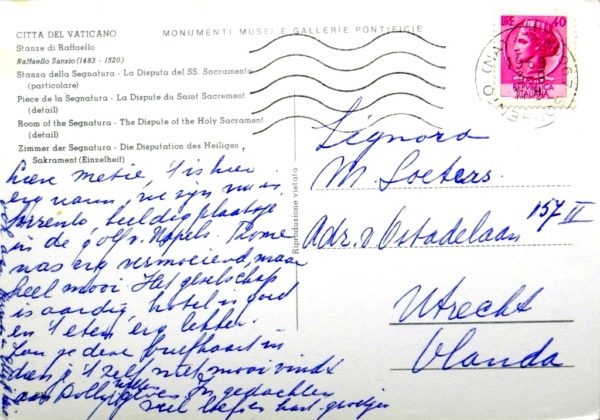 CITTA DEL VATICANO
MONUMENTI MUSEI E GALLERIE PONTIFICIE
Stanze di Raffaello
Raffaello Sanzio (1483 - 1520)
Stanza della Segnatura - La Disputa del SS. Sacramento
(particolare)
Piece de la Segnatura - La Dispute du Saint Sacrement
(detail)
Room of the Segnatura - The Dispute of the Holy Sacrament
(detail)
Zimmer der Segnatura - Die Disputation des Heiligen
Sakrament (Einzelheit)
LIRE 40
Riproduzione vietata
Lieve Metie, 't is hier
erg warm, we zijn nu in
Sorrento, beeldig plaatsje
in de golf v. Napels. Rome
was erg vermoeiend, maar
heel mooi. Het gezelschap
is aardig, hotel is goed
en 't eten erg lekker.
je deze briefkaart
je 't zelf niet mooi vindt
aan Dolly geven. In gedachten
veel liefs hart. groetjes
Signora
M. Soeters
Adr. v. Ostadelaan 157 II
Utrecht
Olanda